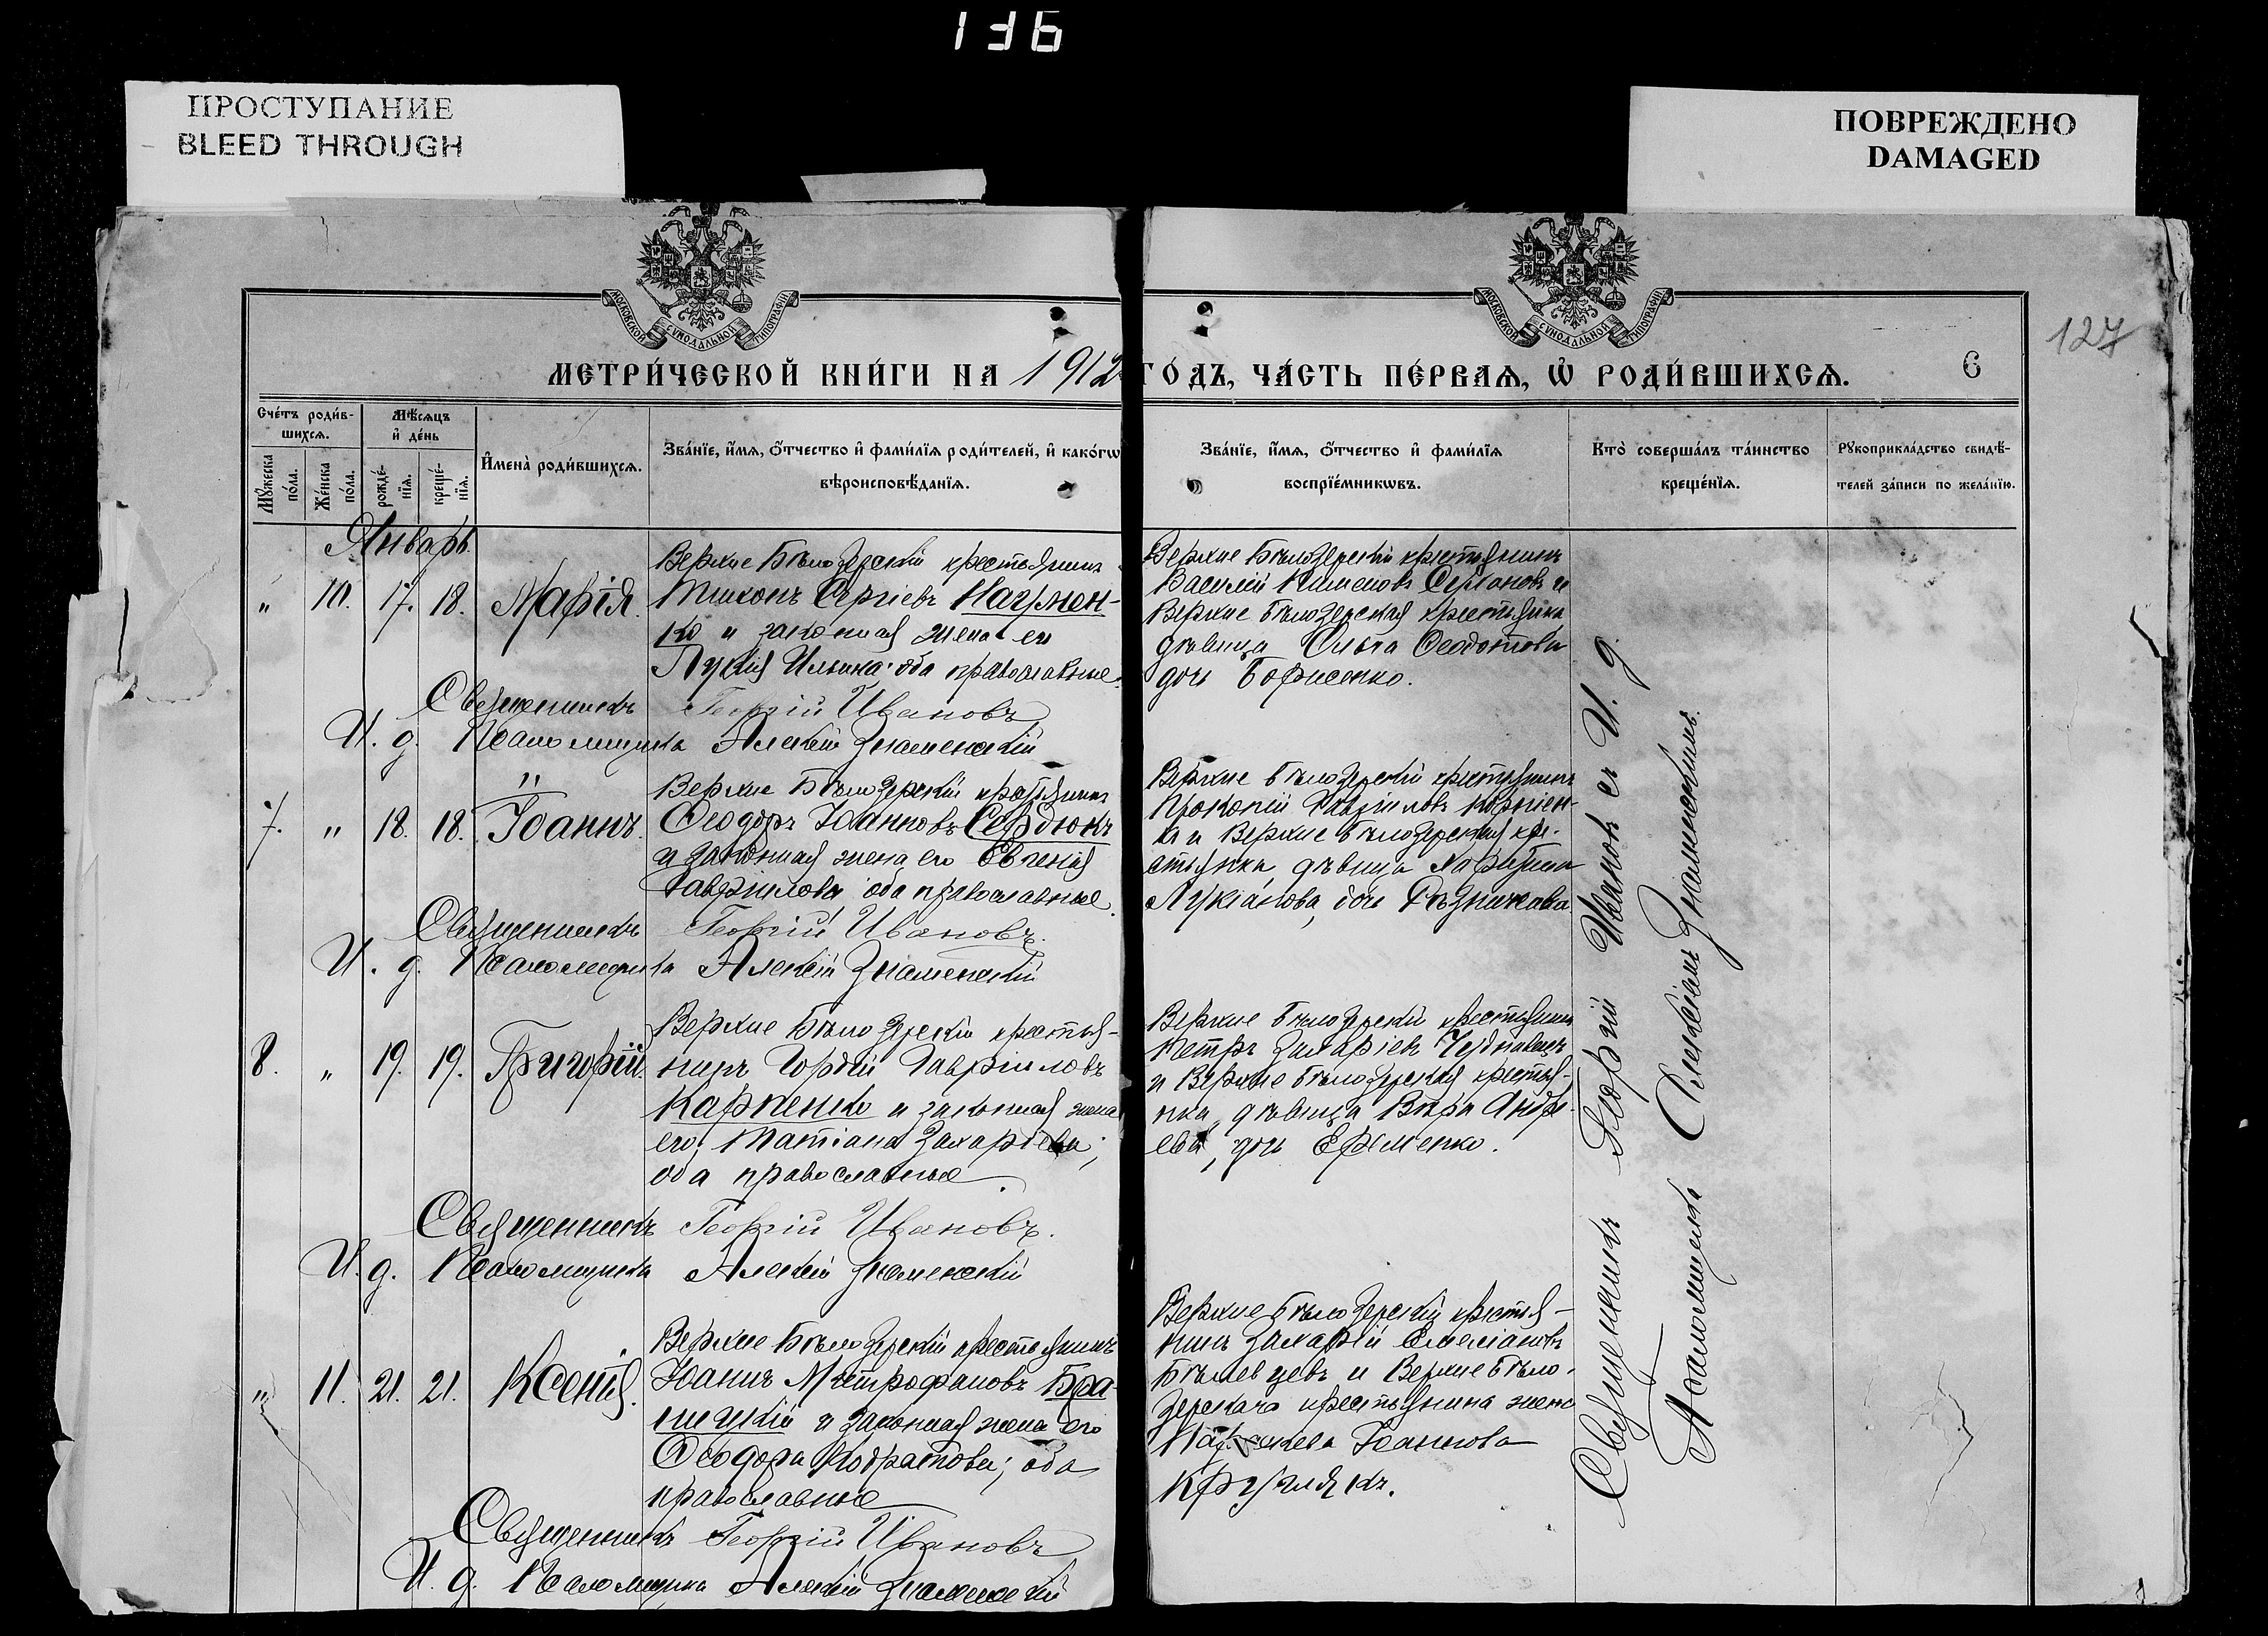 136
ПРОСТУПАНИЕ
BLEED THROUGH
ПОВРЕЖДЕНО
DAMAGED
МОСКОВСКОЙ СѴНОДАЛЬНОЙ ТИПОГРАФІИ
МОСКОВСКОЙ СѴНОДАЛЬНОЙ ТИПОГРАФІИ
127
МЕТРИ́ЧЕСКОЙ КНИ́ГИ НА 1912 ГО́ДЪ, ЧА́СТЬ ПЕ́РВАѦ, Ѡ҆ РОДИ́ВШИХСѦ. 6
Сче́тъ роди́в-
шихсѧ.
Мꙋ́жеска
по́ла.
Же́нска
по́ла.
Мѣ́сѧцъ
и҆ де́нь
рожде́-
нїѧ.
креще́-
нїѧ.
И҆мена̀ роди́вшихсѧ.
Зва́нїе, и҆́мѧ, ѻ҆́тчество и҆ фами́лїѧ роди́телей, и҆ како́гѡ
вѣроисповѣ́данїѧ.
Зва́нїе, и҆́мѧ, ѻ҆́тчество и҆ фами́лїѧ
воспрїе́мникѡвъ.
Кто̀ соверша́лъ та́инство
креще́нїѧ.
Рꙋкоприкла́дство свидѣ́-
телей за́писи по жела́нїю.
Январь.
" 10. 17. 18. Марія.
Верхне Бѣлозерскій крестьянинъ
Тихонъ Сергіевъ Наумен-
ко и законная жена его
Лукія Ильина оба православные.
Верхне Бѣлозерскій крестьянинъ
Василій Пименовъ и
Верхне Бѣлозерская крестьянка
дѣвица Ольга Феодотова
дочь Борисенко.
Священникъ Георгій Ивановъ
И. д. Псаломщика Алексій Знаменскій
"
7. " 18. 18. Іоаннъ.
Верхне Бѣлозерскій крестьянинъ
Ѳеодоръ Іоанновъ Сердюкъ
и законная жена его Евгенія
Гавріилова оба православные.
Верхне Бѣлозерскій крестьянинъ
Прокопій Гавріиловъ Корніен-
ко и Верхне Бѣлозерская кре-
стьянка, дѣвица
Лукіанова, дочь Рѣзникова
Священникъ Георгій Ивановъ.
И. д. Псаломщика Алексій Знаменскій
8. " 19. 19. Григорій.
Верхне Бѣлозерскій крестья-
нинъ Гордій Гавріиловъ
Карпенко и законная жена
его; Татіана Захаріева;
оба православные.
Верхне Бѣлозерскій крестьянинъ
Петръ Захаріевъ
и Верхне Бѣлозерская крестья-
нка, дѣвица Вѣра Андре-
ева, дочь Ефименко.
Священникъ Георгій Ивановъ.
И. д. Псаломщика Алексій Знаменскій
" 11. 21. 21. Ксенія.
Верхне Бѣлозерскій крестьянинъ
Іоаннъ Митрофановъ
и законная жена его
Ѳеодора Кодратова; оба
православные
Верхне Бѣлозерскій крестья-
нинъ Захарій Емеліановъ
и Верхне Бѣло-
зерскаго крестьянина жена
Іоаннова
Кругликъ.
Священникъ Георгій Ивановъ
И. д. Псаломщика Алексій Знаменскій
Священникъ Георгій Ивановъ съ И. д.
Псаломщика Алексіемъ Знаменскимъ.